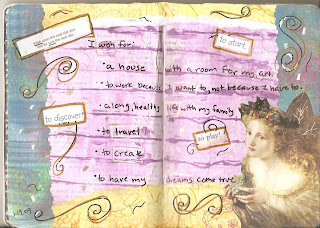 to start
I wish for:
• a house with a room for my art.
• to work because I want to not because I have to.
to discover
• a long, healthy life with my family
• to travel
to play!
• to create
• to have my dreams come true